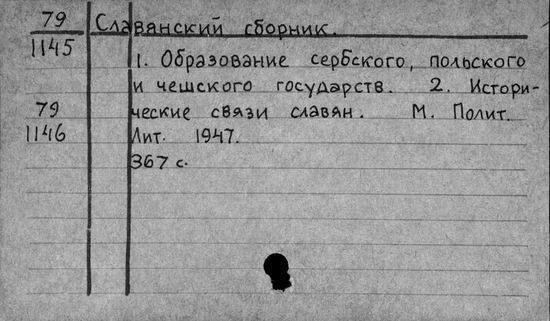 79 Славянский сборник.
1145
1. Образование сербского, польского
и чешского государств. 2. Истори-
79 ческие связи славян. М. Полит.
1146 Лит. 1947.
367 с.